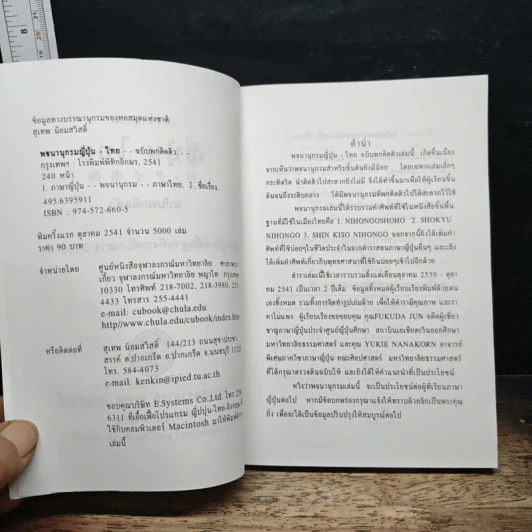 ข้อมูลทางบรรณานุกรมของหอสมุดแห่งชาติ
สุเทพ น้อมสวัสดิ์
พจนานุกรมญี่ปุ่น - ไทย - - ฉบับพกติดตัว. - -
กรุงเทพฯ : โรงพิมพ์พิทักอักษร, 2541
240 หน้า
1. ภาษาญี่ปุ่น - - พจนานุกรม - - ภาษาไทย. 1 ชื่อเรื่อง.
495.6395911
ISBN : 974-572-660-5
พิมพ์ครั้งแรก ตุลาคม 2541 จำนวน 5000 เล่ม
ราคา 90 บาท
จำหน่ายโดย ศูนย์หนังสือจุฬาลงกรณ์มหาวิทยาลัย ศาลาพระ
เกี้ยว จุฬาลงกรณ์มหาวิทยาลัย พญาไท กรุงเทพ
10330 โทรศัพท์ 218-7002, 218-3980, 255-
4433 โทรสาร 255-4441
e-mail: cubook@chula.edu
http//www.chula.edu/cubook/index.htm
หรือติดต่อที่ สุเทพ น้อมสวัสดิ์ 144/213 ถนนสุขาประชา
สรรค์ ต.ปากเกร็ด อ.ปากเกร็ด จ.นนทบุรี 11120
โทร. 584-4073
e-mail: kenkin@ipied.tu.ac.th
ขอบคุณบริษัท E.Systems Co.,Ltd. โทร 256-
6311 ที่เอื้อเฟื้อโปรแกรม ญี่ปุ่น-ไทย-อังกฤษ
ใช้กับคอมพิวเตอร์ Macintosh มาให้พิมพ์ตำรา
เล่มนี้
คำนำ
พจนานุกรมญี่ปุ่น - ไทย ฉบับพกติดตัวเล่มนี้ เกิดขึ้นเนื่อง
จากเห็นว่าพจนานุกรมสำหรับชั้นต้นยังมีน้อย โดยเฉพาะเล่มเล็กๆ
กระทัดรัด นำติดตัวไปสะดวกยังไม่มี จึงได้ทำขึ้นมาเพื่อให้ผู้เรียนชั้น
ต้นจนถึงระดับกลาง ได้มีพจนานุกรมที่พกติดตัวไปได้สะดวกไว้ใช้
พจนานุกรมเล่มนี้ได้รวบรวมคำศัพท์ที่ใช้ในหนังสือชั้นพื้น
ฐานที่มีใช้ในเมืองไทยคือ 1. NIHONGOSHOHO 2. SHOKYU
NIHONGO 3. SHIN KISO NIHONGO นอกจากนี้ยังได้เพิ่มคำ
ศัพท์ที่ใช้บ่อยๆในชีวิตประจำวันจากตำราสอนภาษาญี่ปุ่นอื่นๆ และยัง
ได้เพิ่มคำศัพท์เกี่ยวกับพุทธศาสนาที่ใช้กันบ่อยๆเข้าไปอีกด้วย
ตำราเล่มนี้ใช้เวลารวบรวมตั้งแต่เดือนตุลาคม 2539 - ตุลา
คม 2541 เป็นเวลา 2 ปีเต็ม ข้อมูลทั้งหมดผู้เรียบเรียงพิมพ์ด้วยตน
เองทั้งหมด รวมทั้งการจัดทำรูปเล่มด้วย เพื่อให้ตำรามีคุณภาพ และรา
คาไม่แพง ผู้เรียบเรียงขอขอบคุณ คุณFUKUDA JUN อดีตผู้เชี่ยว
ชาญภาษาญี่ปุ่นประจำศูนย์ญี่ปุ่นศึกษา สถาบันเอเชียตะวันออกศึกษา
มหาวิทยาลัยธรรมศาสตร์ และคุณ YUKIE NANAKORN อาจารย์
พิเศษภาควิชาภาษาญี่ปุ่น คณะศิลปศาสตร์ มหาวิทยาลัยธรรมศาสตร์
ที่ได้กรุณาตรวจต้นฉบับให้ และยังได้ให้คำแนะนำที่เป็นประโยชน์
หวังว่าพจนานุกรมเล่มนี้ จะเป็นประโยชน์ต่อผู้ที่เรียนภาษา
ญี่ปุ่นต่อไป หากมีข้อบกพร่องกรุณาแจ้งให้ทราบด้วยจักเป็นพระคุณ
ยิ่ง เพื่อจะได้เป็นข้อมูลปรับปรุงให้สมบูรณ์ต่อไป